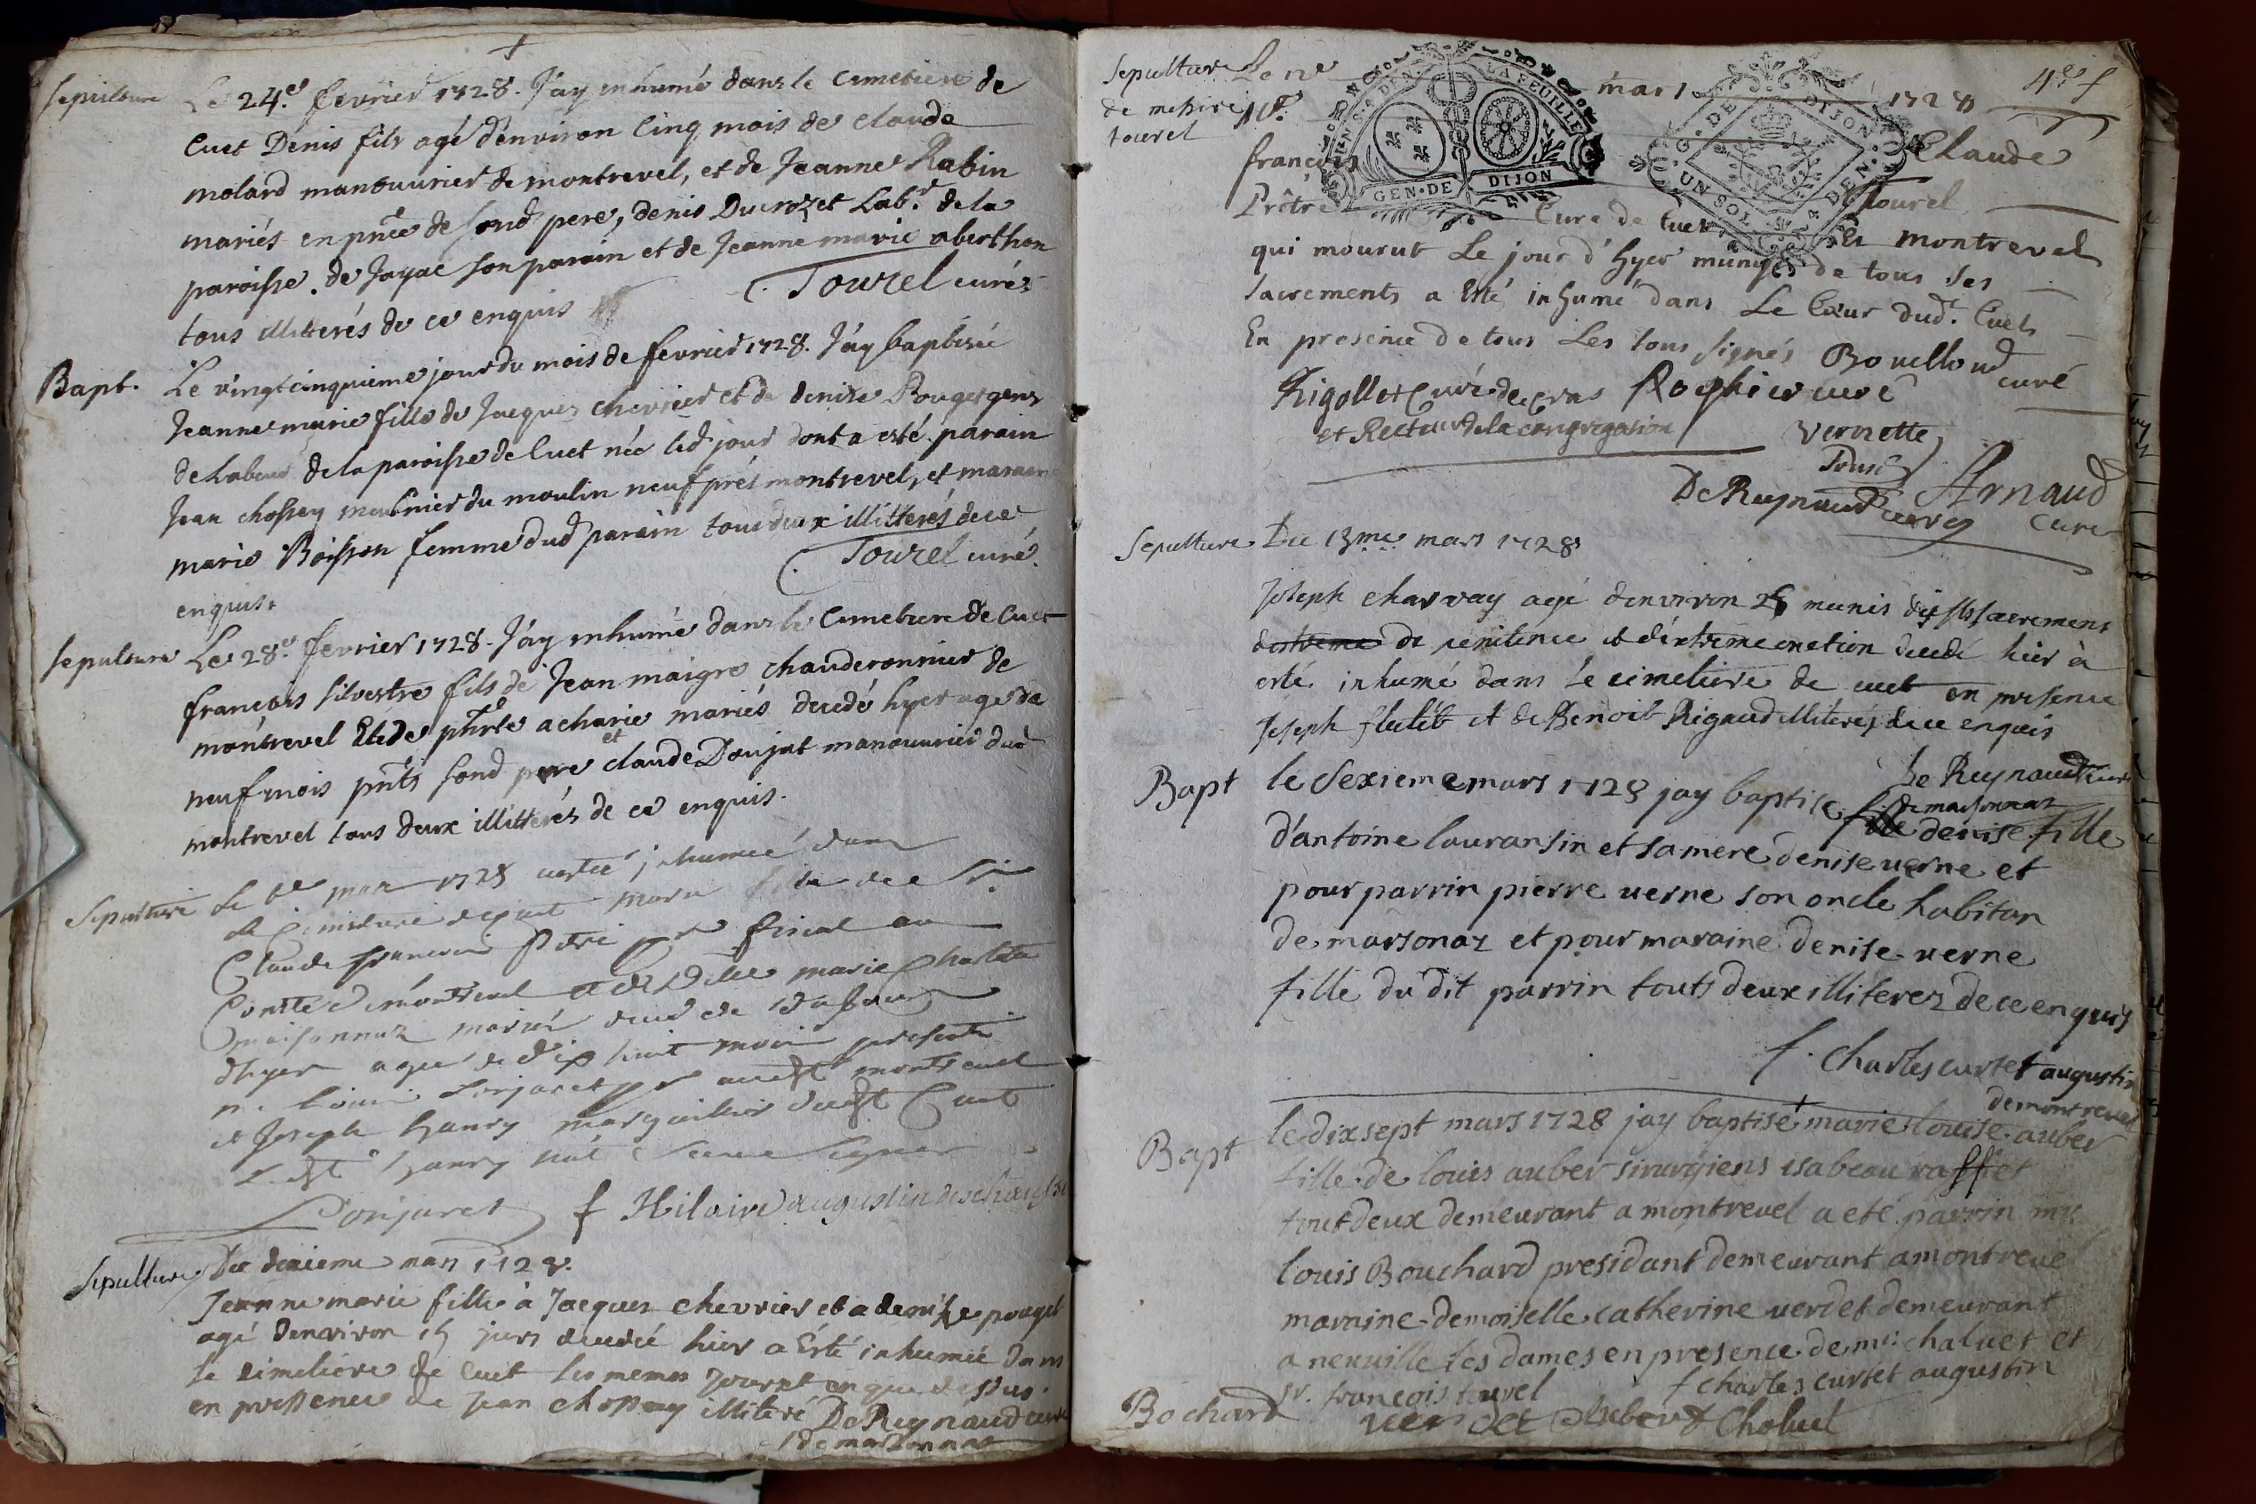 sepulture Le 24.e fevrier 1728. J'ay inhumé dans le cimetiere de
Cuet Denis fils agé d'environ Cinq mois de claude
molard manouvrier de montrevel, et de Jeanne Rabin
mariés en pñce de sond pere, denis Ducrozet Lab.r de la
paroisse de Jayac son parain et de Jeanne marie aberthon
tous illiterés de ce enquis
Tourel curé
Bapt. Le vingt cinquieme jour du mois de fevrier 1728. J'ay baptisée
Jeanne marie fille de Jacques chevrier et de denise Pouget gens
de Labeur de la paroisse de Cuet née led jour dont a esté parain
Jean chossey meunier du moulin neuf prés montrevel, et maraine
marie Boisson femme dud parain tous deux illitterés de ce
enquis.
Tourel curé.
sepulture Le 28.e fevrier 1728. J'ay inhumé dans le Cimetiere de Cuet
francois silvestre fils de Jean maigre chauderonnier de
montrevel Et de phrte acharie mariés decedé hyer agé de
neuf mois pnts sond pere et claude Doujat manouvrier dud
montrevel tous deux illitterés de ce enquis.
Sepulture Le mars 1728 a esté inhumée dans
le Cimetiere de Cuet marie fille de Sr
Claude francois fiscal au
Comté de montrevel et de Dlle marie Charlote
maisonnaz mariés
d'hyer agee de dix huit mois presents
mr. Louis Lonjaret montrevel
et Joseph hanry marguillier dudt Cuet
Ledt hanry n'a sceu signer
Lonjaret f Hilaire augustin deschaussé
Sepulture Du deuxieme mars 1728.
Jeanne marie fille à Jacques chevrier et a denise pouget
agé denviron jours decedée hier a Esté inhumée dans
le cimetiere de Cuet les memes jour et an que dessus
en presence de Jean chossey illiteré De Reynaud curé
de marsonnas
4e f
Sepulture de messire tourel
Le 12e mars 1728
Mr. Claude
françois Tourel
Prêtre Curé de Cuet et montrevel
qui mourut Le jour d'hyer munys de tous ses
sacrements a Esté inhumé dans Le Cœur dud. Cuet
En presence de tous Les sous signés Bouilloud
curé
Rigollet Curé de Cras Rophier curé
et Recteur de la congregation Vernette
De Reynaud curé Arnaud
Curé
GEN·DE DIJON
LA FEUILLE
G·DE DIJON
UN SOL 4 DEN
Sepulture Du 13me mars 1728
Joseph charvay agé denviron 25 munis des sts sacremens
de penitence et d'extreme onction decedé hier à
esté inhumé dans le cimetiere de cuet en presence
Joseph et de Benoit Rigaud illiterés de ce enquis
De Reynaud curé
de marsonnaz
Bapt le sexieme mars 1728 jay baptise denise fille
d'antoine lauransin et sa mere denise verne et
pour parrin pierre verne son oncle habitan
de marsonaz et pour maraine denise verne
fille du dit parrin touts deux illiterez de ce enquis
f. charles curtet augustin
de montrevel
Bapt le dixsept mars 1728 jay baptisé marie louise auber
fille de louis auber sirurgiens isabeau raffet
tout deux demeurant a montrevel a eté parrin mr
louis Bouchard presidant demeurant a montrevel
maraine demoiselle catherine verdet demeurant
a neuville les dames en presence de mr. chaluet et
sr. françois tourel f charles curtet augustin
Bochard verdet Auber Chaluet